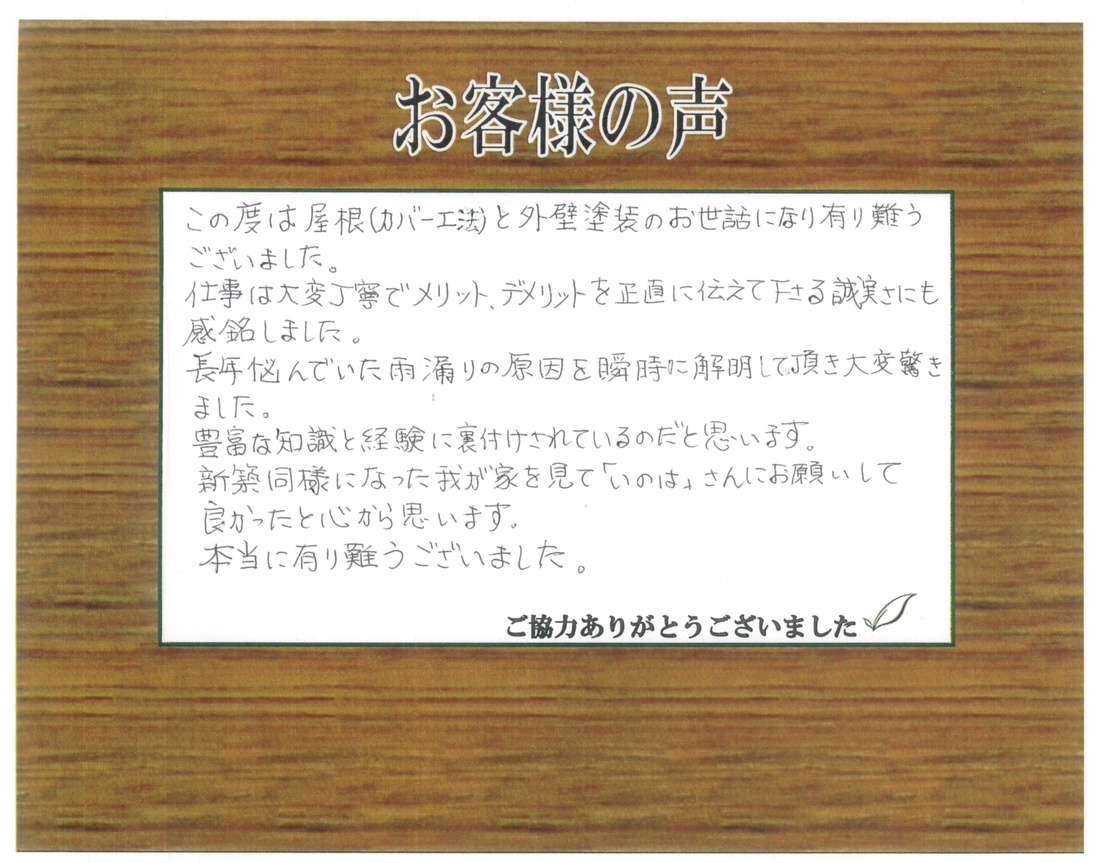 お客様の声
この度は屋根(カバー工法)と外壁塗装のお世話になり有り難う
ございました。
仕事は大変丁寧でメリット、デメリットを正直に伝えて下さる誠実さにも
感銘しました。
長年悩んでいた雨漏りの原因を瞬時に解明して頂き大変驚き
ました。
豊富な知識と経験に裏付けされているのだと思います。
新築同様になった我が家を見て「いのは」さんにお願いして
良かったと心から思います。
本当に有り難うございました。
ご協力ありがとうございました